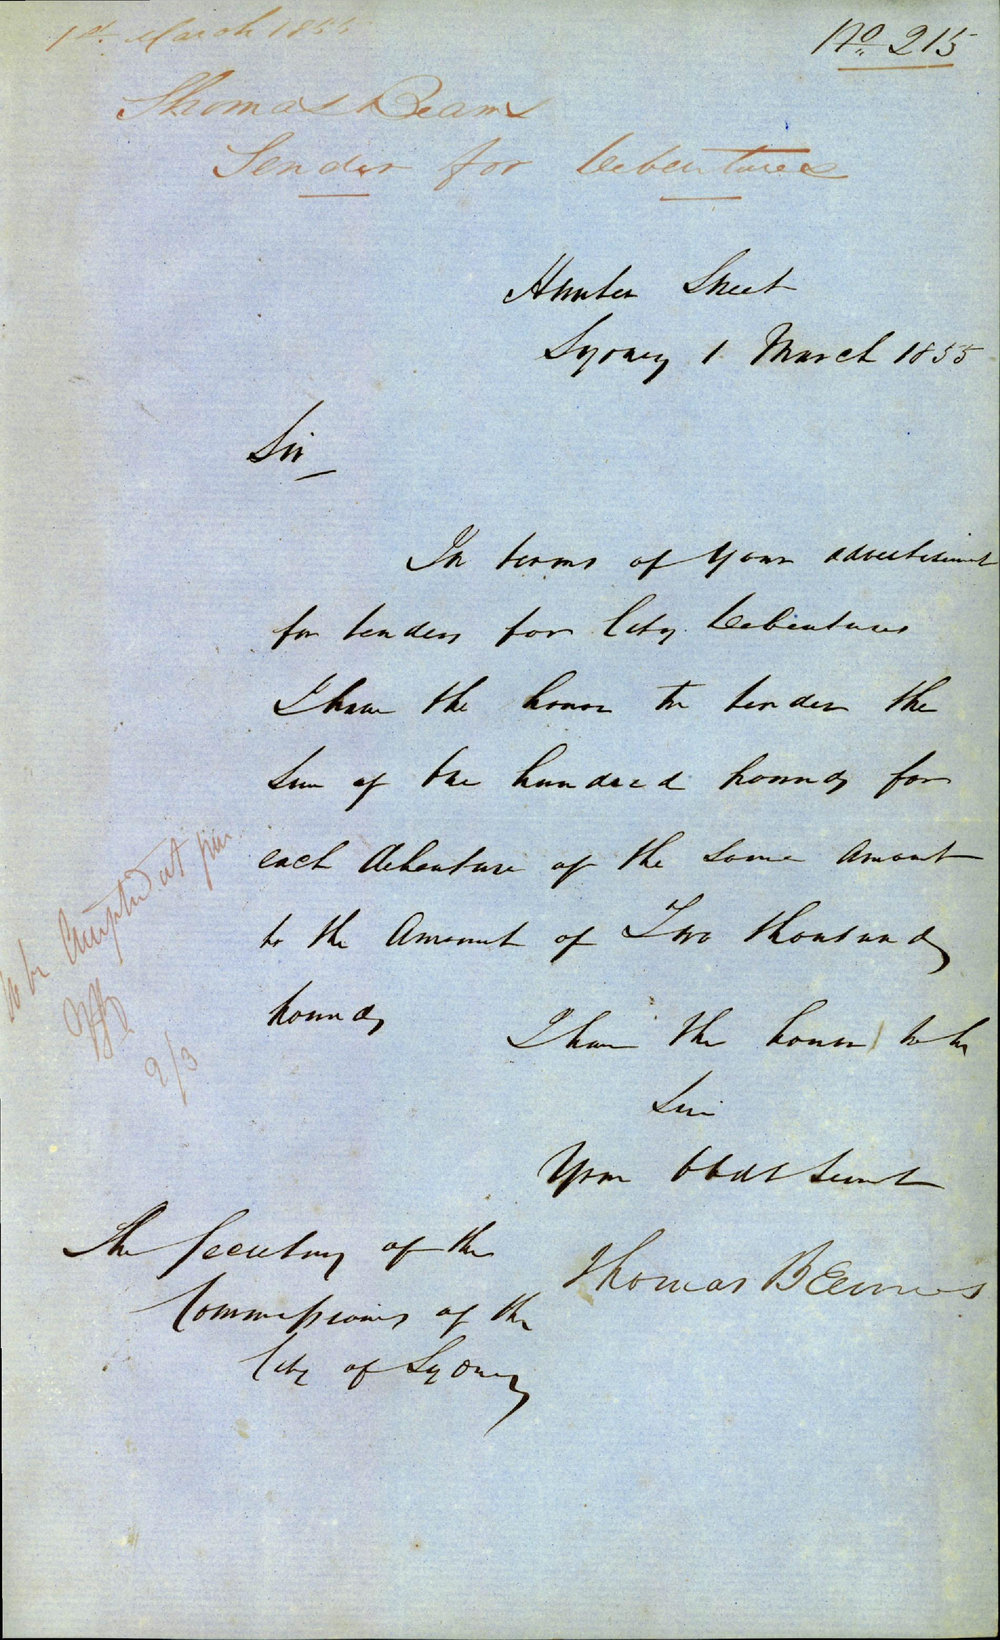 1st March 1855
No 215
Thomas Beams
Tender for Debentures
Hunter Street
Sydney 1 March 1855
Sir
In terms of your advertisement
for tenders for City Debentures
I have the honor to tender the
sum of one hundred pounds for
each debenture of the same amount
to the amount of Two thousand
pounds
I have the honor to be
Sir
Your Obdt Servt
Thomas Beames
The Secretary of the
Commissioners of the
City of Sydney
to be accepted at par
9/3